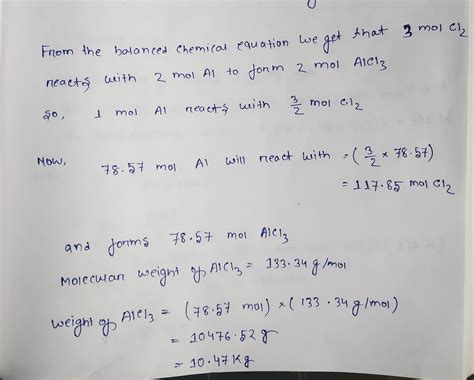 From the balanced chemical equation we get that 3 mol Cl2
reacts with 2 mol Al to form 2 mol AlCl3
so, 1 mol Al reacts with 3/2 mol Cl2
Now, 78.57 mol Al will react with = (3/2 × 78.57)
= 117.85 mol Cl2
and forms 78.57 mol AlCl3
Molecular weight of AlCl3 = 133.34 g/mol
weight of AlCl3 = (78.57 mol) × (133.34 g/mol)
= 10476.52 g
= 10.47 Kg